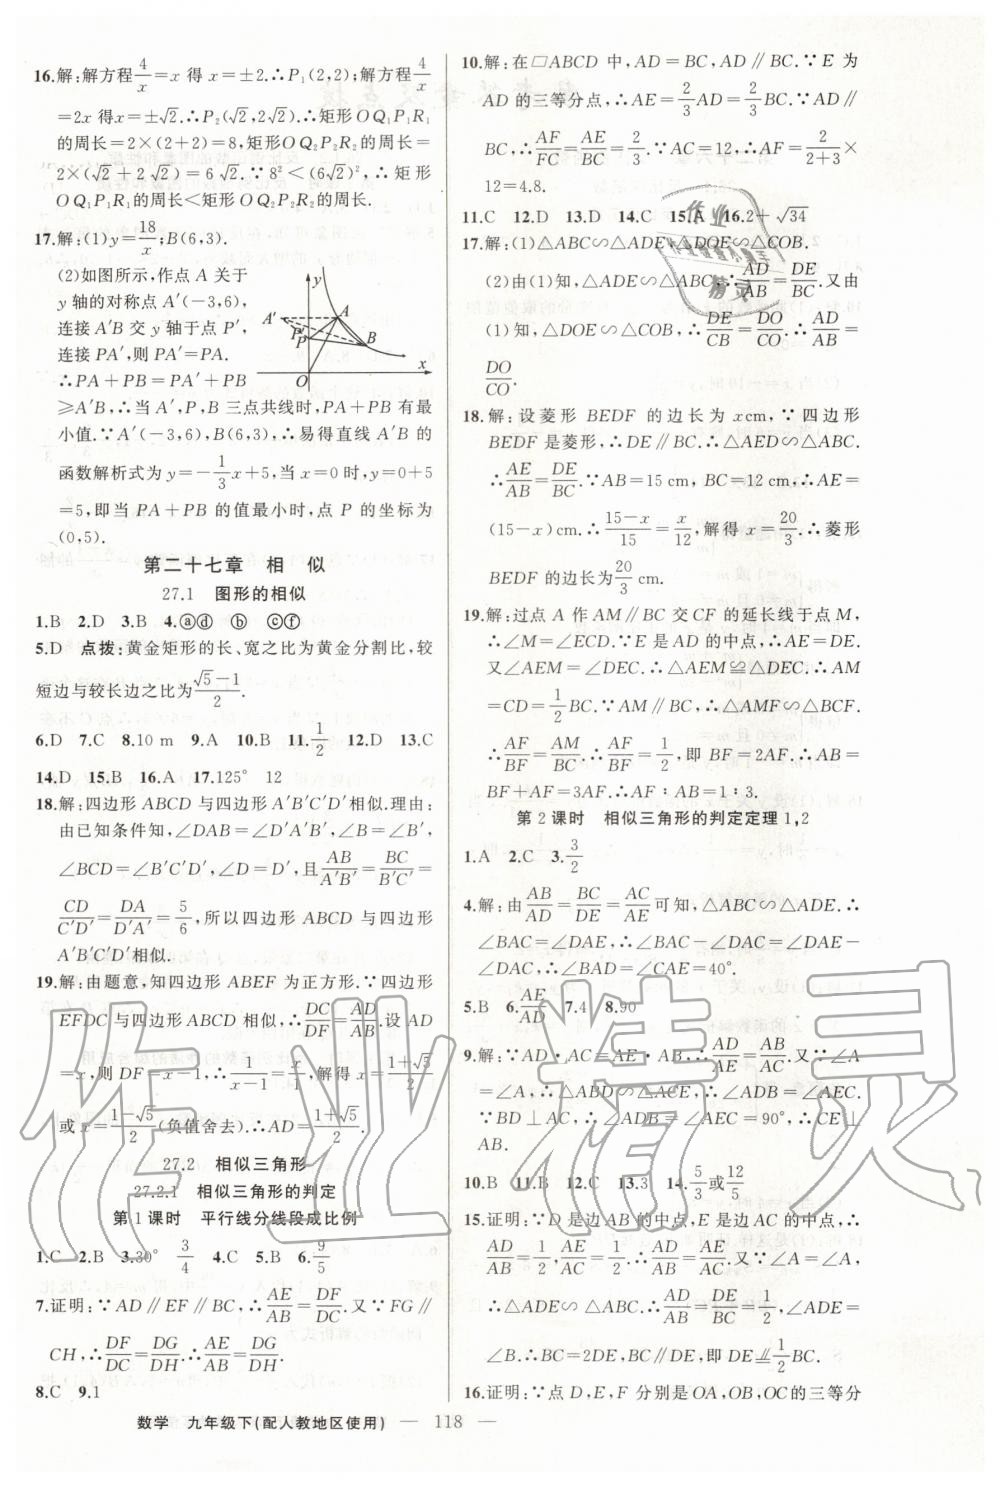 16.解:解方程4/x=x 得 x=±2.∴P₁(2,2);解方程4/x
=2x 得 x=±√2.∴P₂(√2,2√2).∴矩形OQ₁P₁R₁
的周长=2×(2+2)=8,矩形 OQ₂P₂R₂ 的周长=
2×(√2+2√2)=6√2.∵8²<(6√2)²,∴矩形
OQ₁P₁R₁的周长<矩形OQ₂P₂R₂的周长.
17.解:(1)y=18/x;B(6,3).
(2)如图所示,作点 A 关于
y 轴的对称点 A′(-3,6),
连接 A′B 交 y 轴于点 P′,
连接 PA′,则 PA′=PA.
∴PA+PB=PA′+PB
≥A′B,∴当 A′,P,B 三点共线时,PA+PB 有最
小值.∵A′(-3,6),B(6,3),∴易得直线 A′B 的
函数解析式为 y=-1/3x+5,当 x=0 时,y=0+5
=5,即当 PA+PB 的值最小时,点 P 的坐标为
(0,5).
y
A′
A
P′
P
B
O
x
第二十七章 相 似
27.1 图形的相似
1.B 2.D 3.B 4.ⓐⓓ ⓑ ⓒⓕ
5.D 点拨:黄金矩形的长、宽之比为黄金分割比,较
短边与较长边之比为(√5-1)/2.
6.D 7.C 8.10 m 9.A 10.B 11.1/2 12.D 13.C
14.D 15.B 16.A 17.125° 12
18.解:四边形 ABCD 与四边形 A′B′C′D′相似.理由:
由已知条件知,∠DAB=∠D′A′B′,∠B=∠B′,
∠BCD=∠B′C′D′,∠D=∠D′,且AB/A′B′=BC/B′C′=
CD/C′D′=DA/D′A′=5/6,所以四边形 ABCD 与四边形
A′B′C′D′相似.
19.解:由题意,知四边形 ABEF 为正方形.∵四边形
EFDC 与四边形 ABCD 相似,∴DC/DF=AD/AB.设 AD
=x,则 DF=x-1,∴1/(x-1)=x/1,解得 x=(1+√5)/2
或 x=(1-√5)/2(负值舍去).∴AD=(1+√5)/2.
27.2 相似三角形
27.2.1 相似三角形的判定
第1课时 平行线分线段成比例
1.C 2.B 3.30° 3/4 4.C 5.B 6.9/5
7.证明:∵AD∥EF∥BC,∴AE/AB=DF/DC.又∵FG∥
CH,∴DF/DC=DG/DH.∴AE/AB=DG/DH.
8.C 9.1
10.解:在▱ABCD 中,AD=BC,AD∥BC.∵E 为
AD 的三等分点,∴AE=2/3AD=2/3BC.∵AD∥
BC,∴AF/FC=AE/BC=2/3.∵AC=12,∴AF=2/(2+3)×
12=4.8.
11.C 12.D 13.D 14.C 15.A 16.2+√34
17.解:(1)△ABC∽△ADE,△DOE∽△COB.
(2)由(1)知,△ADE∽△ABC,∴AD/AB=DE/BC.又由
(1)知,△DOE∽△COB,∴DE/CB=DO/CO.∴AD/AB=
DO/CO.
18.解:设菱形 BEDF 的边长为 x cm,∵四边形
BEDF 是菱形,∴DE∥BC.∴△AED∽△ABC.
∴AE/AB=DE/BC.∵AB=15 cm,BC=12 cm,∴AE=
(15-x)cm.∴(15-x)/15=x/12,解得 x=20/3.∴菱形
BEDF 的边长为20/3 cm.
19.解:过点 A 作 AM∥BC 交 CF 的延长线于点 M,
∴∠M=∠ECD.∵E 是 AD 的中点,∴AE=DE.
又∠AEM=∠DEC.∴△AEM≌△DEC.∴AM
=CD=1/2BC.∵AM∥BC,∴△AMF∽△BCF.
∴AF/BF=AM/BC.∴AF/BF=1/2,即 BF=2AF.∴AB=
BF+AF=3AF.∴AF∶AB=1∶3.
第2课时 相似三角形的判定定理1,2
1.A 2.C 3.3/2
4.解:由AB/AD=BC/DE=AC/AE可知,△ABC∽△ADE.∴
∠BAC=∠DAE,∴∠BAC-∠DAC=∠DAE-
∠DAC,∴∠BAD=∠CAE=40°.
5.B 6.AE/AD 7.4 8.90
9.解:∵AD·AC=AE·AB,∴AD/AE=AB/AC.又∵∠A
=∠A,∴△ABD∽△ACE,∴∠ADB=∠AEC.
∵BD⊥AC,∴∠ADB=∠AEC=90°,∴CE⊥
AB.
10.B 11.C 12.C 13.3 14.5/3或12/5
15.证明:∵D 是边 AB 的中点,E 是边 AC 的中点,∴
AD/AB=1/2,AE/AC=1/2,∴AD/AB=AE/AC.又∵∠A=∠A,
∴△ADE∽△ABC.∴AD/AB=DE/BC=1/2,∠ADE=
∠B.∴BC=2DE,BC∥DE,即 DE⫽1/2BC.
16.证明:∵点 D,E,F 分别是 OA,OB,OC 的三等分
数学 九年级下(配人教地区使用) — 118 —
作业精灵